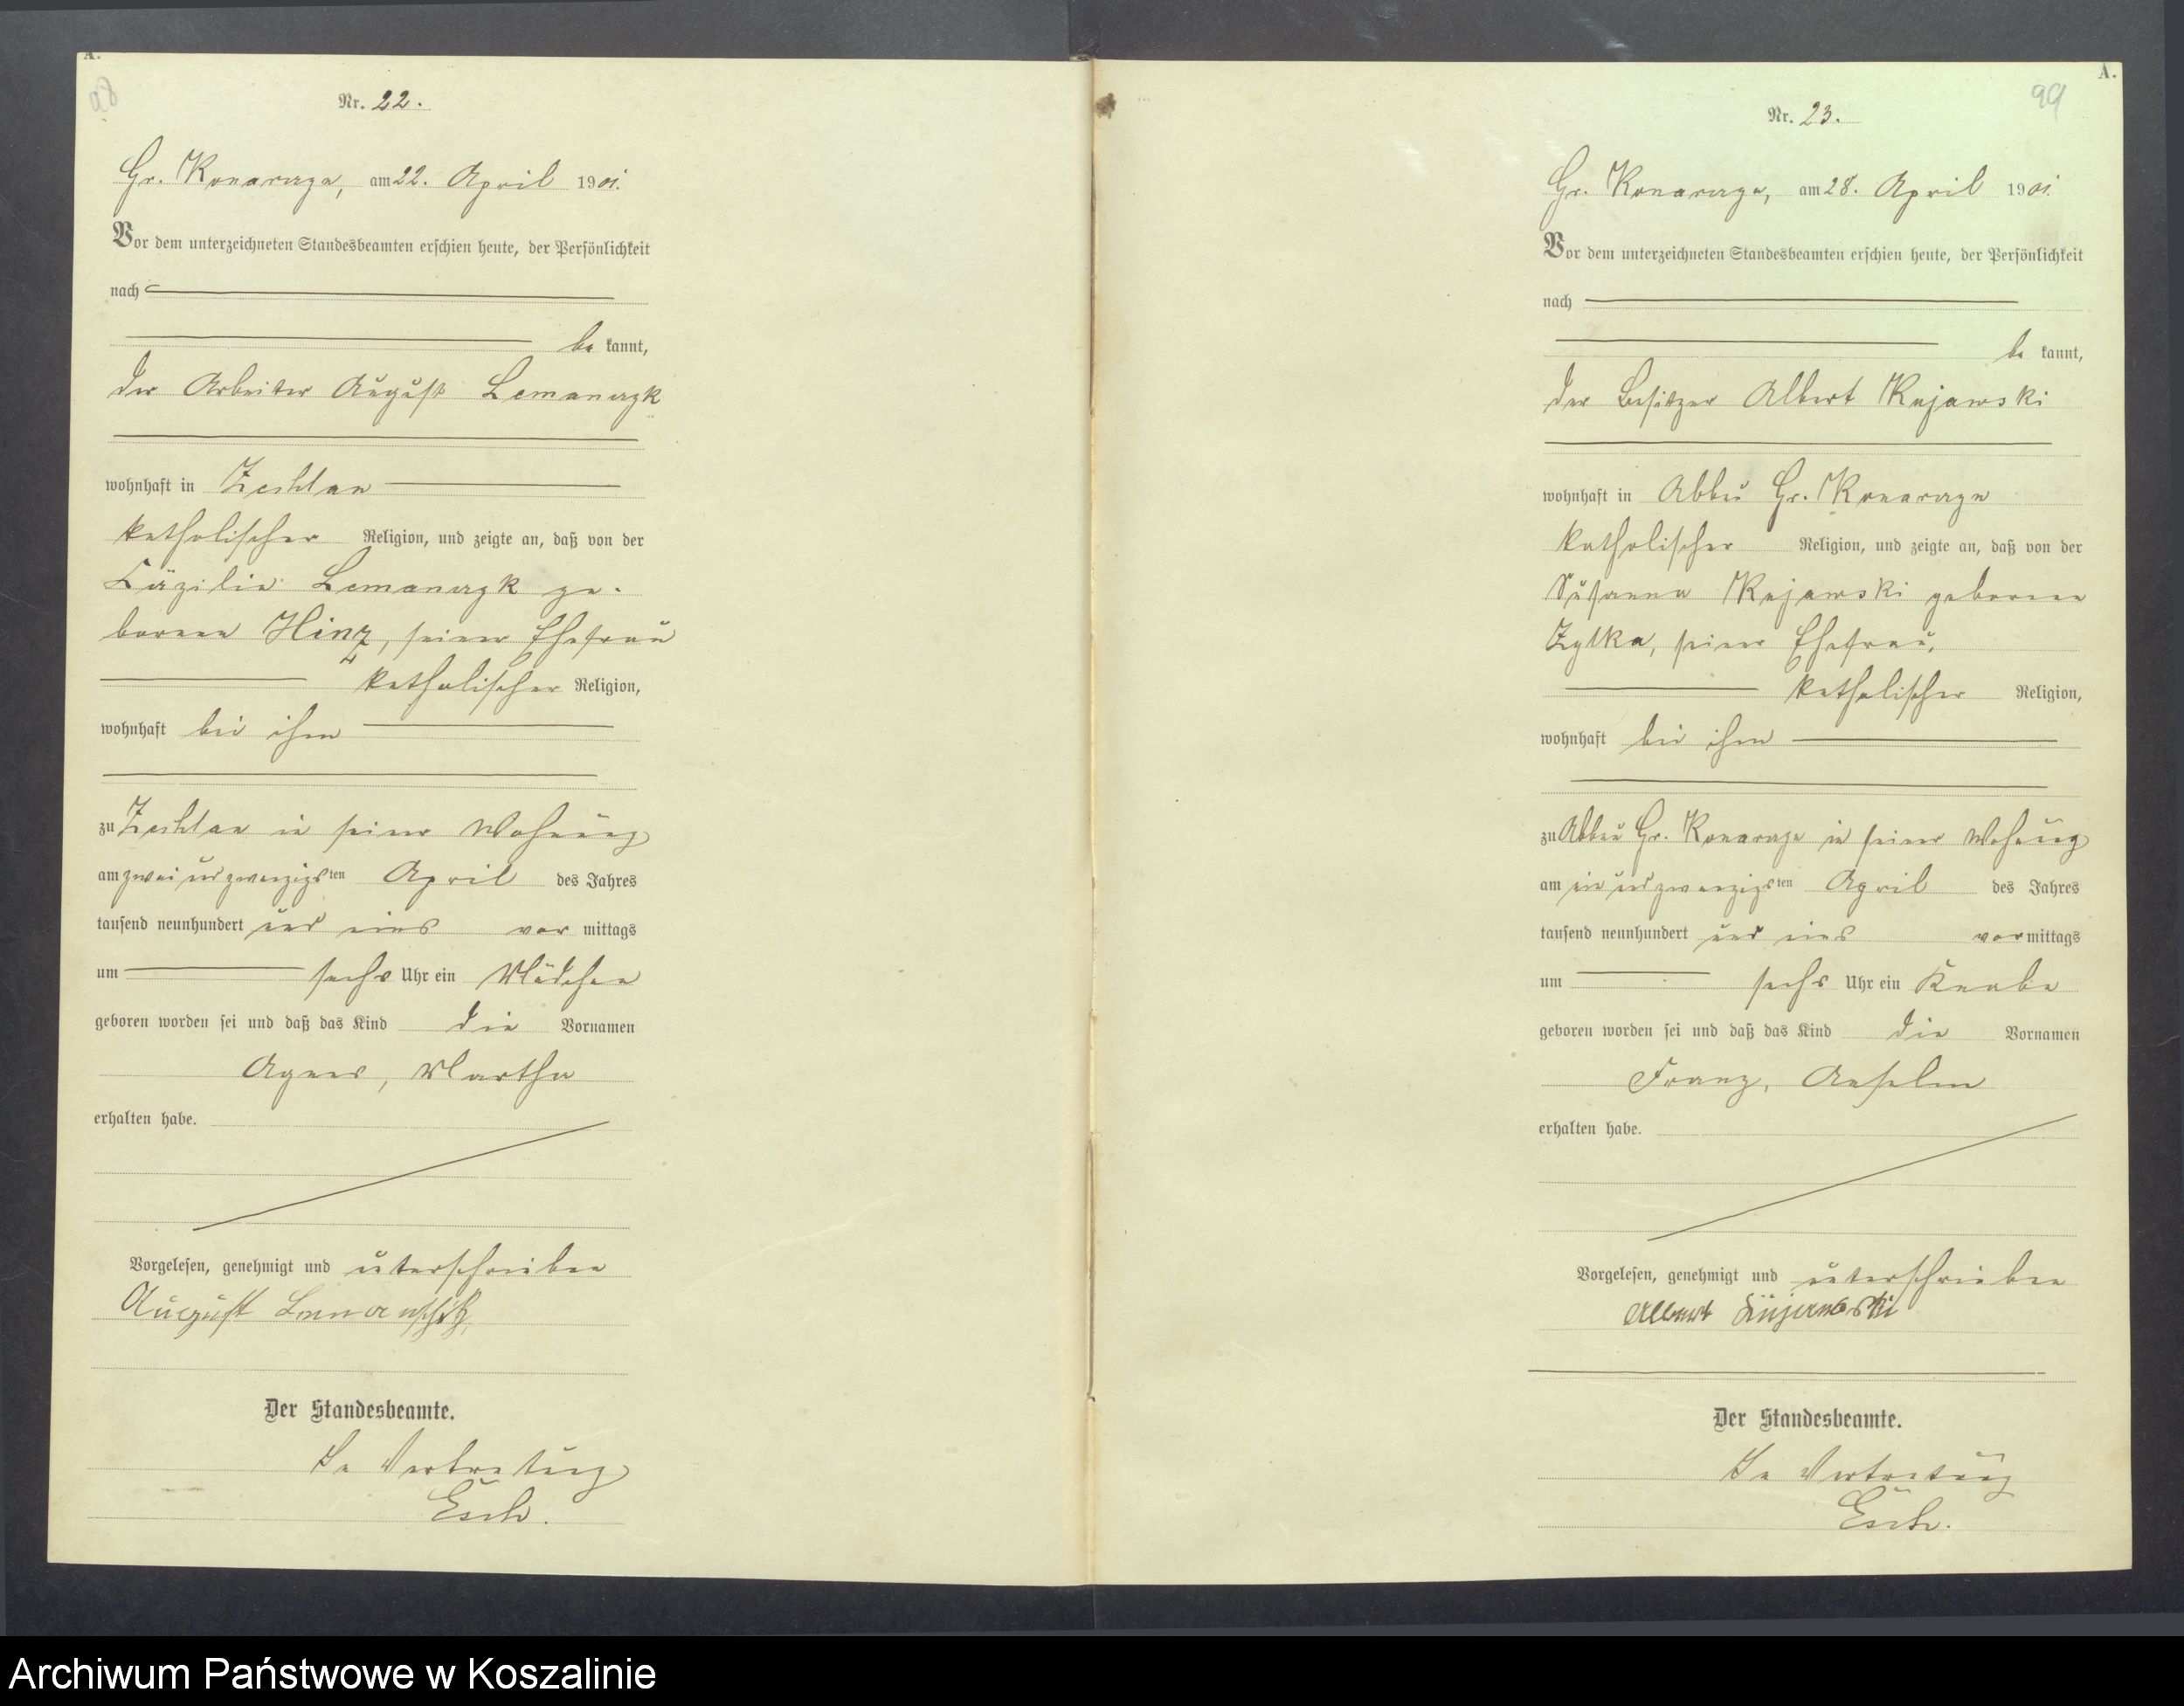 A.
98
Nr. 22.
Gr. Konarczyn, am 22. April 1901.
Vor dem unterzeichneten Standesbeamten erschien heute, der Persönlichkeit
nach
be kannt,
der Arbeiter August Lemanczyk
wohnhaft in Zechlau
katholischer Religion, und zeigte an, daß von der
Cäzilie Lemanczyk ge-
borene Hinz, seiner Ehefrau
katholischer Religion,
wohnhaft bei ihm
zu Zechlau in seiner Wohnung
am zwei und zwanzigsten April des Jahres
tausend neunhundert und eins vor mittags
um sechs Uhr ein Mädchen
geboren worden sei und daß das Kind die Vornamen
Agnes, Martha
erhalten habe.
Vorgelesen, genehmigt und unterschrieben
August
Der Standesbeamte.
In Vertretung
Esch.
A.
99
Nr. 23.
Gr. Konarczyn, am 28. April 1901.
Vor dem unterzeichneten Standesbeamten erschien heute, der Persönlichkeit
nach
be kannt,
der Besitzer Albert Kujawski
wohnhaft in Abbau Gr. Konarczyn
katholischer Religion, und zeigte an, daß von der
Susanna Kujawski geborene
Zytka, seiner Ehefrau,
katholischer Religion,
wohnhaft bei ihm
zu Abbau Gr. Konarczyn in seiner Wohnung
am ein und zwanzigsten April des Jahres
tausend neunhundert und eins vor mittags
um sechs Uhr ein Knabe
geboren worden sei und daß das Kind die Vornamen
Franz, Anselm
erhalten habe.
Vorgelesen, genehmigt und unterschrieben
Albert Kujawski
Der Standesbeamte.
In Vertretung
Esch.
Archiwum Państwowe w Koszalinie